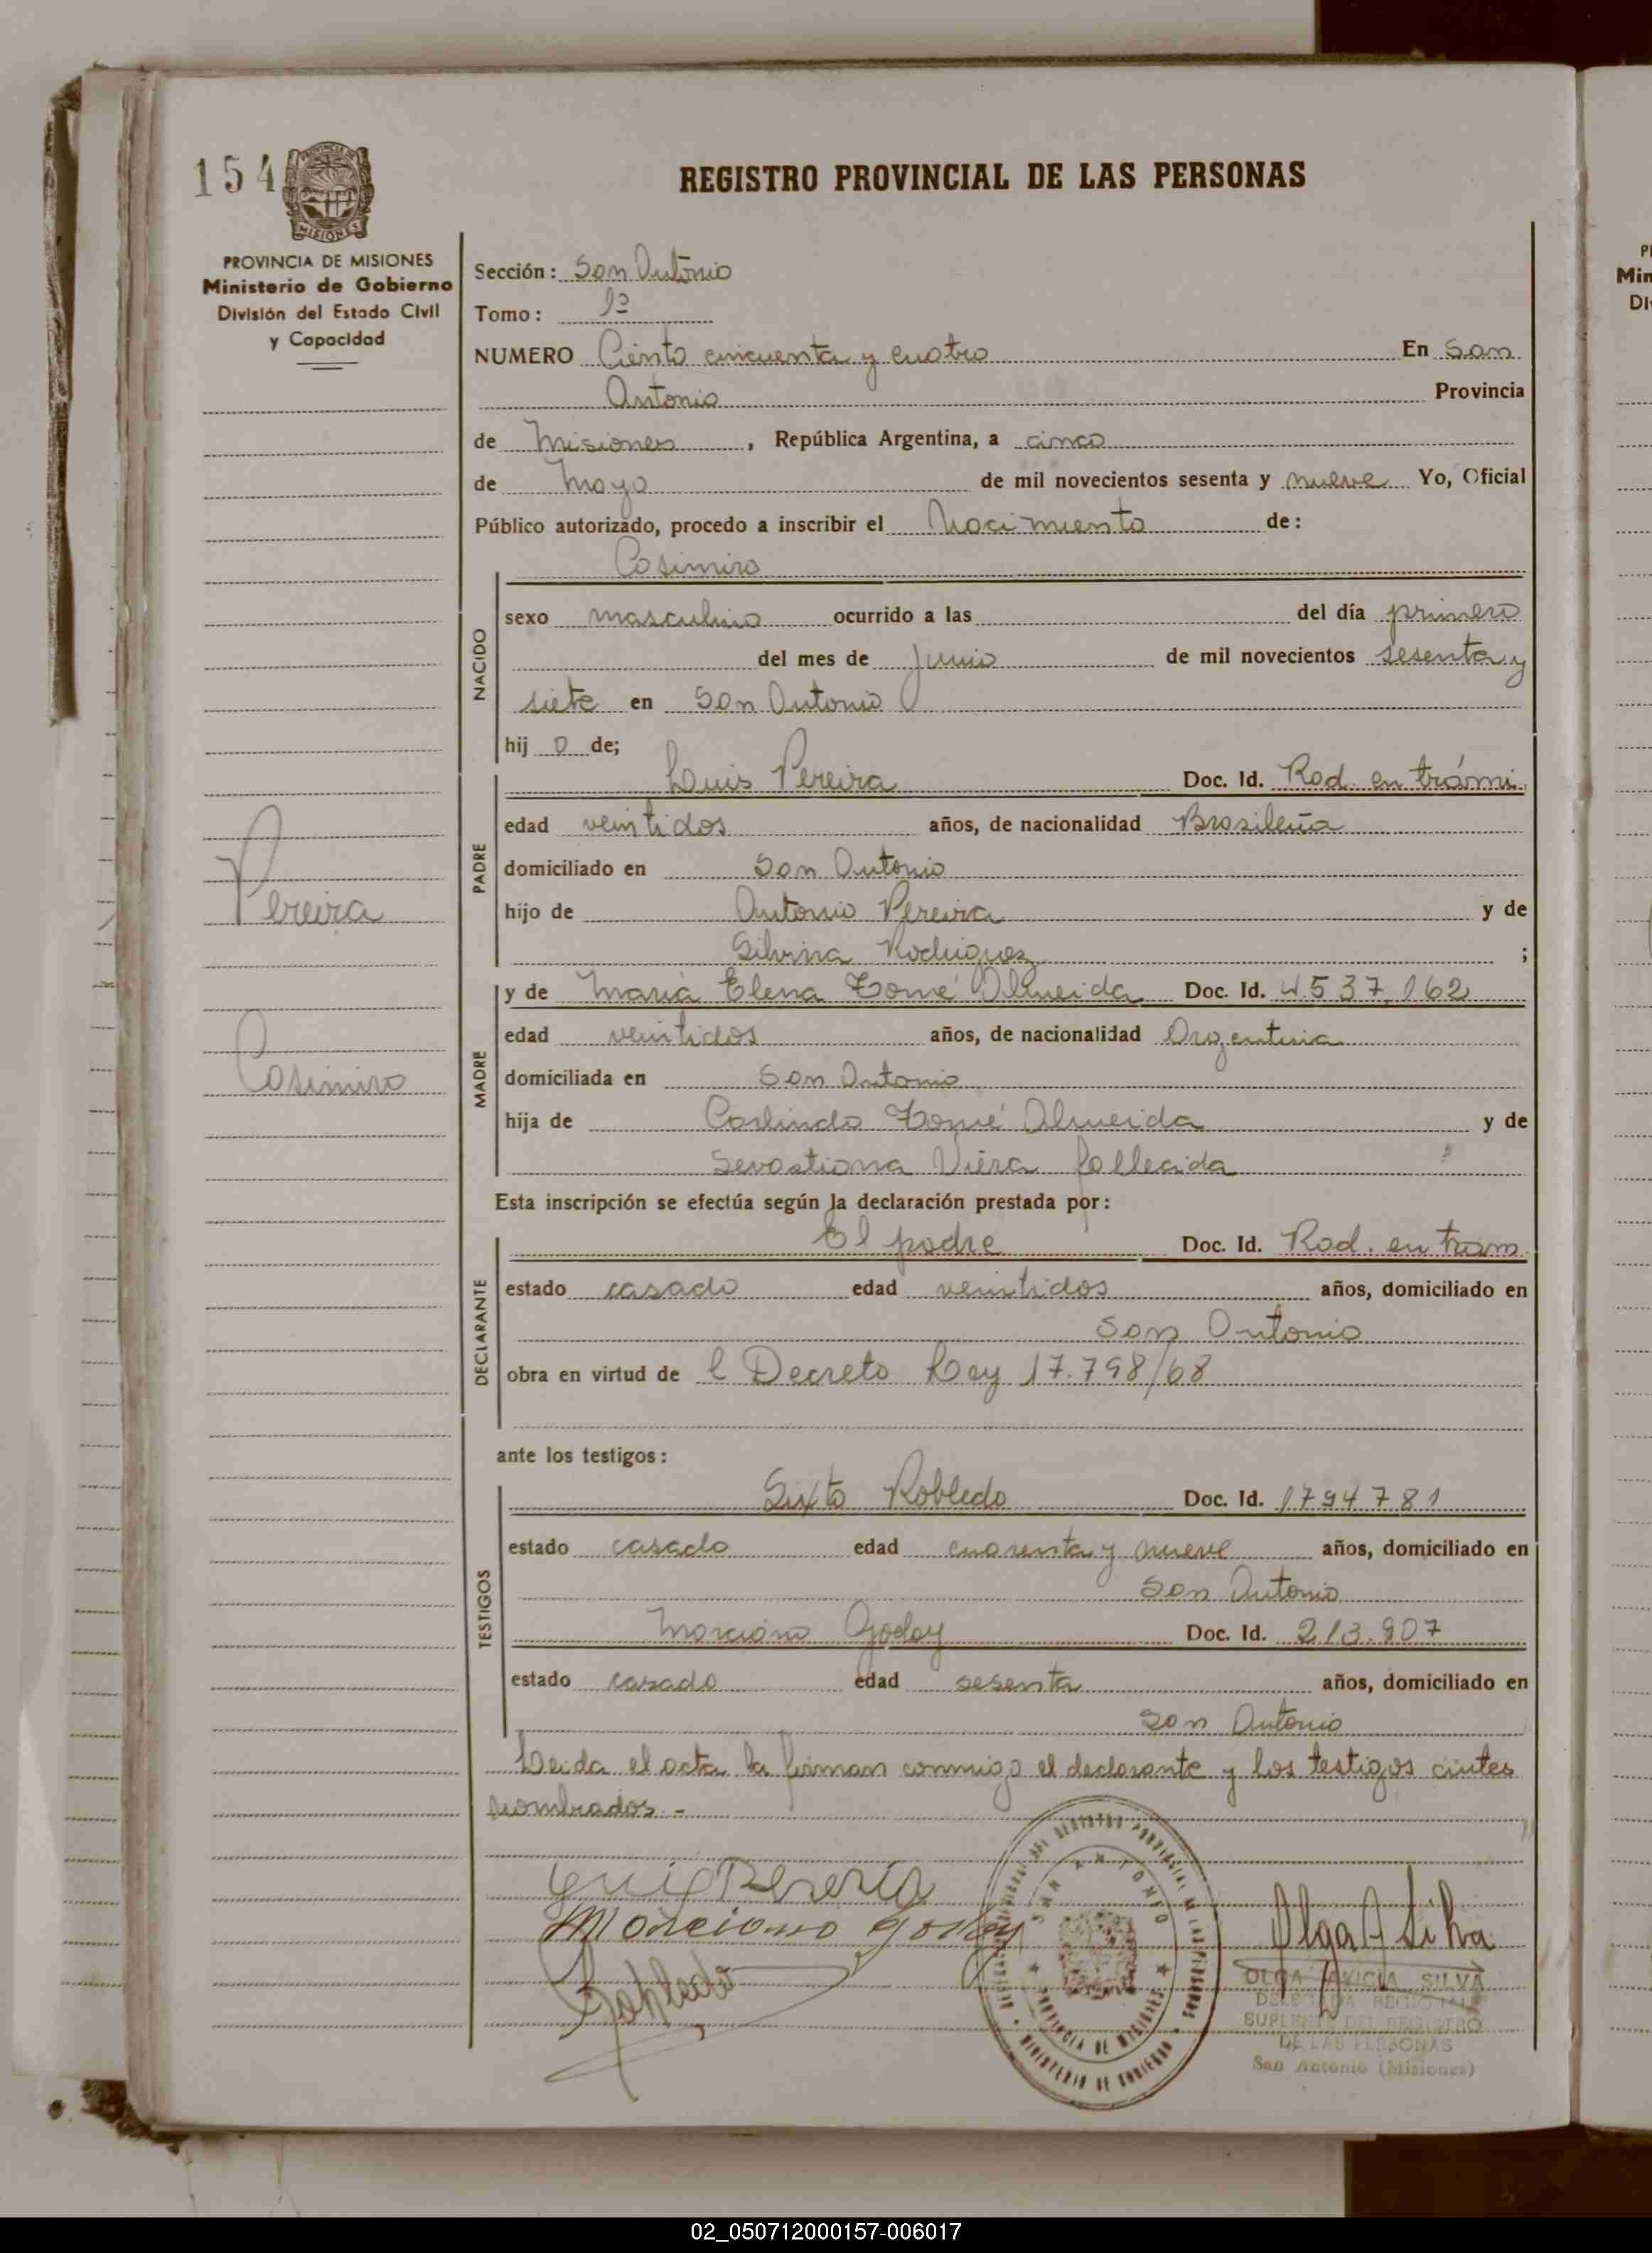 154
PROVINCIA DE MISIONES
Ministerio de Gobierno
División del Estado Civil
y Capacidad
REGISTRO PROVINCIAL DE LAS PERSONAS
Sección: San Antonio
Tomo: 1º
NUMERO Ciento cincuenta y cuatro En San
Antonio Provincia
de Misiones, República Argentina, a cinco
de Mayo de mil novecientos sesenta y nueve Yo, Oficial
Público autorizado, procedo a inscribir el Nacimiento de:
Casimiro
NACIDO
sexo masculino ocurrido a las del día primero
del mes de Junio de mil novecientos sesenta y
siete en San Antonio
hij o de;
PADRE
Luis Pereira Doc. Id. Rad. en trámi.
edad veintidos años, de nacionalidad Brasileña
domiciliado en San Antonio
hijo de Antonio Pereira y de
Silvina Rodriguez ;
MADRE
y de Maria Elena Tomé Almeida Doc. Id. 4.537.162
edad veintidos años, de nacionalidad Argentina
domiciliada en San Antonio
hija de Carlindo Tomé Almeida y de
Sevastiana Viera fallecida
Pereira
Casimiro
Esta inscripción se efectúa según la declaración prestada por:
DECLARANTE
El padre Doc. Id. Rad. en tram.
estado casado edad veintidos años, domiciliado en
San Antonio
obra en virtud de l Decreto Ley 17.798/68
ante los testigos:
TESTIGOS
Sixto Robledo Doc. Id. 1794781
estado casado edad cuarenta y nueve años, domiciliado en
San Antonio
Marciano Godoy Doc. Id. 213.907
estado casado edad sesenta años, domiciliado en
San Antonio
Leida el acta la firman conmigo el declarante y los testigos
nombrados.-
Marciano Godoy
Robledo
Olga A Silva
OLGA SILVA
DELEGADA REGIONAL
SUPLENTE DEL REGISTRO
DE LAS PERSONAS
San Antonio (Misiones)
SAN ANTONIO
PROVINCIA DE MISIONES
MINISTERIO DE GOBIERNO
02_050712000157-006017